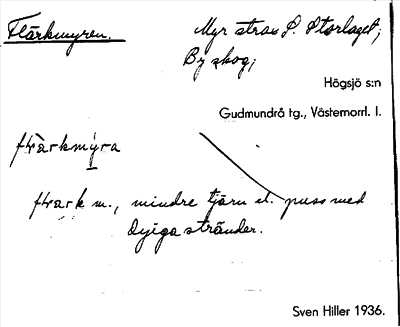 Flärkmyren.
Myr strax S. Storlaget,
By skog,
Högsjö s:n
Gudmundrå tg., Västernorrl. l.
flärkmýra
flark m., mindre tjärn el. puss med
dyiga stränder.
Sven Hiller 1936.